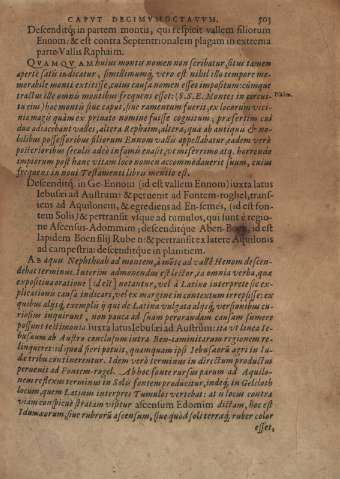 CAPVT DECIMVMOCTAVVM. 503
Descenditq́; in partem montis, qui respicit vallem filiorum
Ennom: & est contra Septentrionalem plagam in extrema
parte Vallis Raphaim.
QVAMQVAM huius montis nomen non scribatur, situs tamen
aperte satis indicatur, similitimumq́; vero est nihil illo tempore me-
morabile monti extitisse, cuius causa nomen esset impositum: cúmque
tractus ille omnis montibus frequens esset: (S.S.E. Montes in circui-
tu eius) hoc
duo adiacebant valles, altera Rephaim, altera, quæ ab antiquis & no-
bilibus possessoribus filiorum Ennom vallis appellabatur, eadem verò
posterioribus seculis adeò infamis
impiorum post hanc vitam loco nomen accommodauerit suum, cuius
frequens in noui Testamenti libris mentio est.
Descenditq́; in Ge-Ennom (id est vallem Ennom) iuxta latus
Iebusæi ad Austrum: & peruenit ad Fontem-rogliel, transi-
ens ad Aquilonem, & egrediens ad En-semes, (id est fon-
tem Solis) & pertransit vsque ad tumulos, qui sunt è regio-
ne Ascensus-Adommim; descenditque Aben-Boen, id est
lapidem Boen filij Ruben: & pertransit ex latere Aquilonis
ad campestria: descenditque in planitiem.
AB aquis Nephthoah ad montem, à monte ad vallē Henom descen-
debat terminus. Interim admonendus est lector, ea omnia verba, quæ
expositiua oratione [id est] notantur, vel à Latino interprete
explicationis causa indicari, vel ex margine in contextum irrepsisse: ex
quibus aliqua, exemplaria quæ in Latina vulgata
riosius inquirunt, non pauca ad suam perorandam causam sumere
possunt testimonia iuxta latus Iebusæi ad Austrum: ita vt linea Ie-
busæum ab Austro conclusum intra Ben-iaminitarum regionem re-
linqueret: id quod fieri potuit, quamquam ipsi Iebusæorū agri in Iu-
dæ tribu continerentur. Idem verò terminus in directum productus
peruenit ad Fontem-rogel. Ab hoc fonte rursus parum ad Aquilo-
nem reflexus terminus in Solis fontem producitur, indeq́; in Geliloth
locum, quem Latinus interpres Tumulos vertebat: at is locus contra
viam conspicuè stratam visitur ascensum Edomim dictam, hoc est
Idumæorum, siue rubrorū ascensum, siue quod soli terræq́; ruber color
esset,